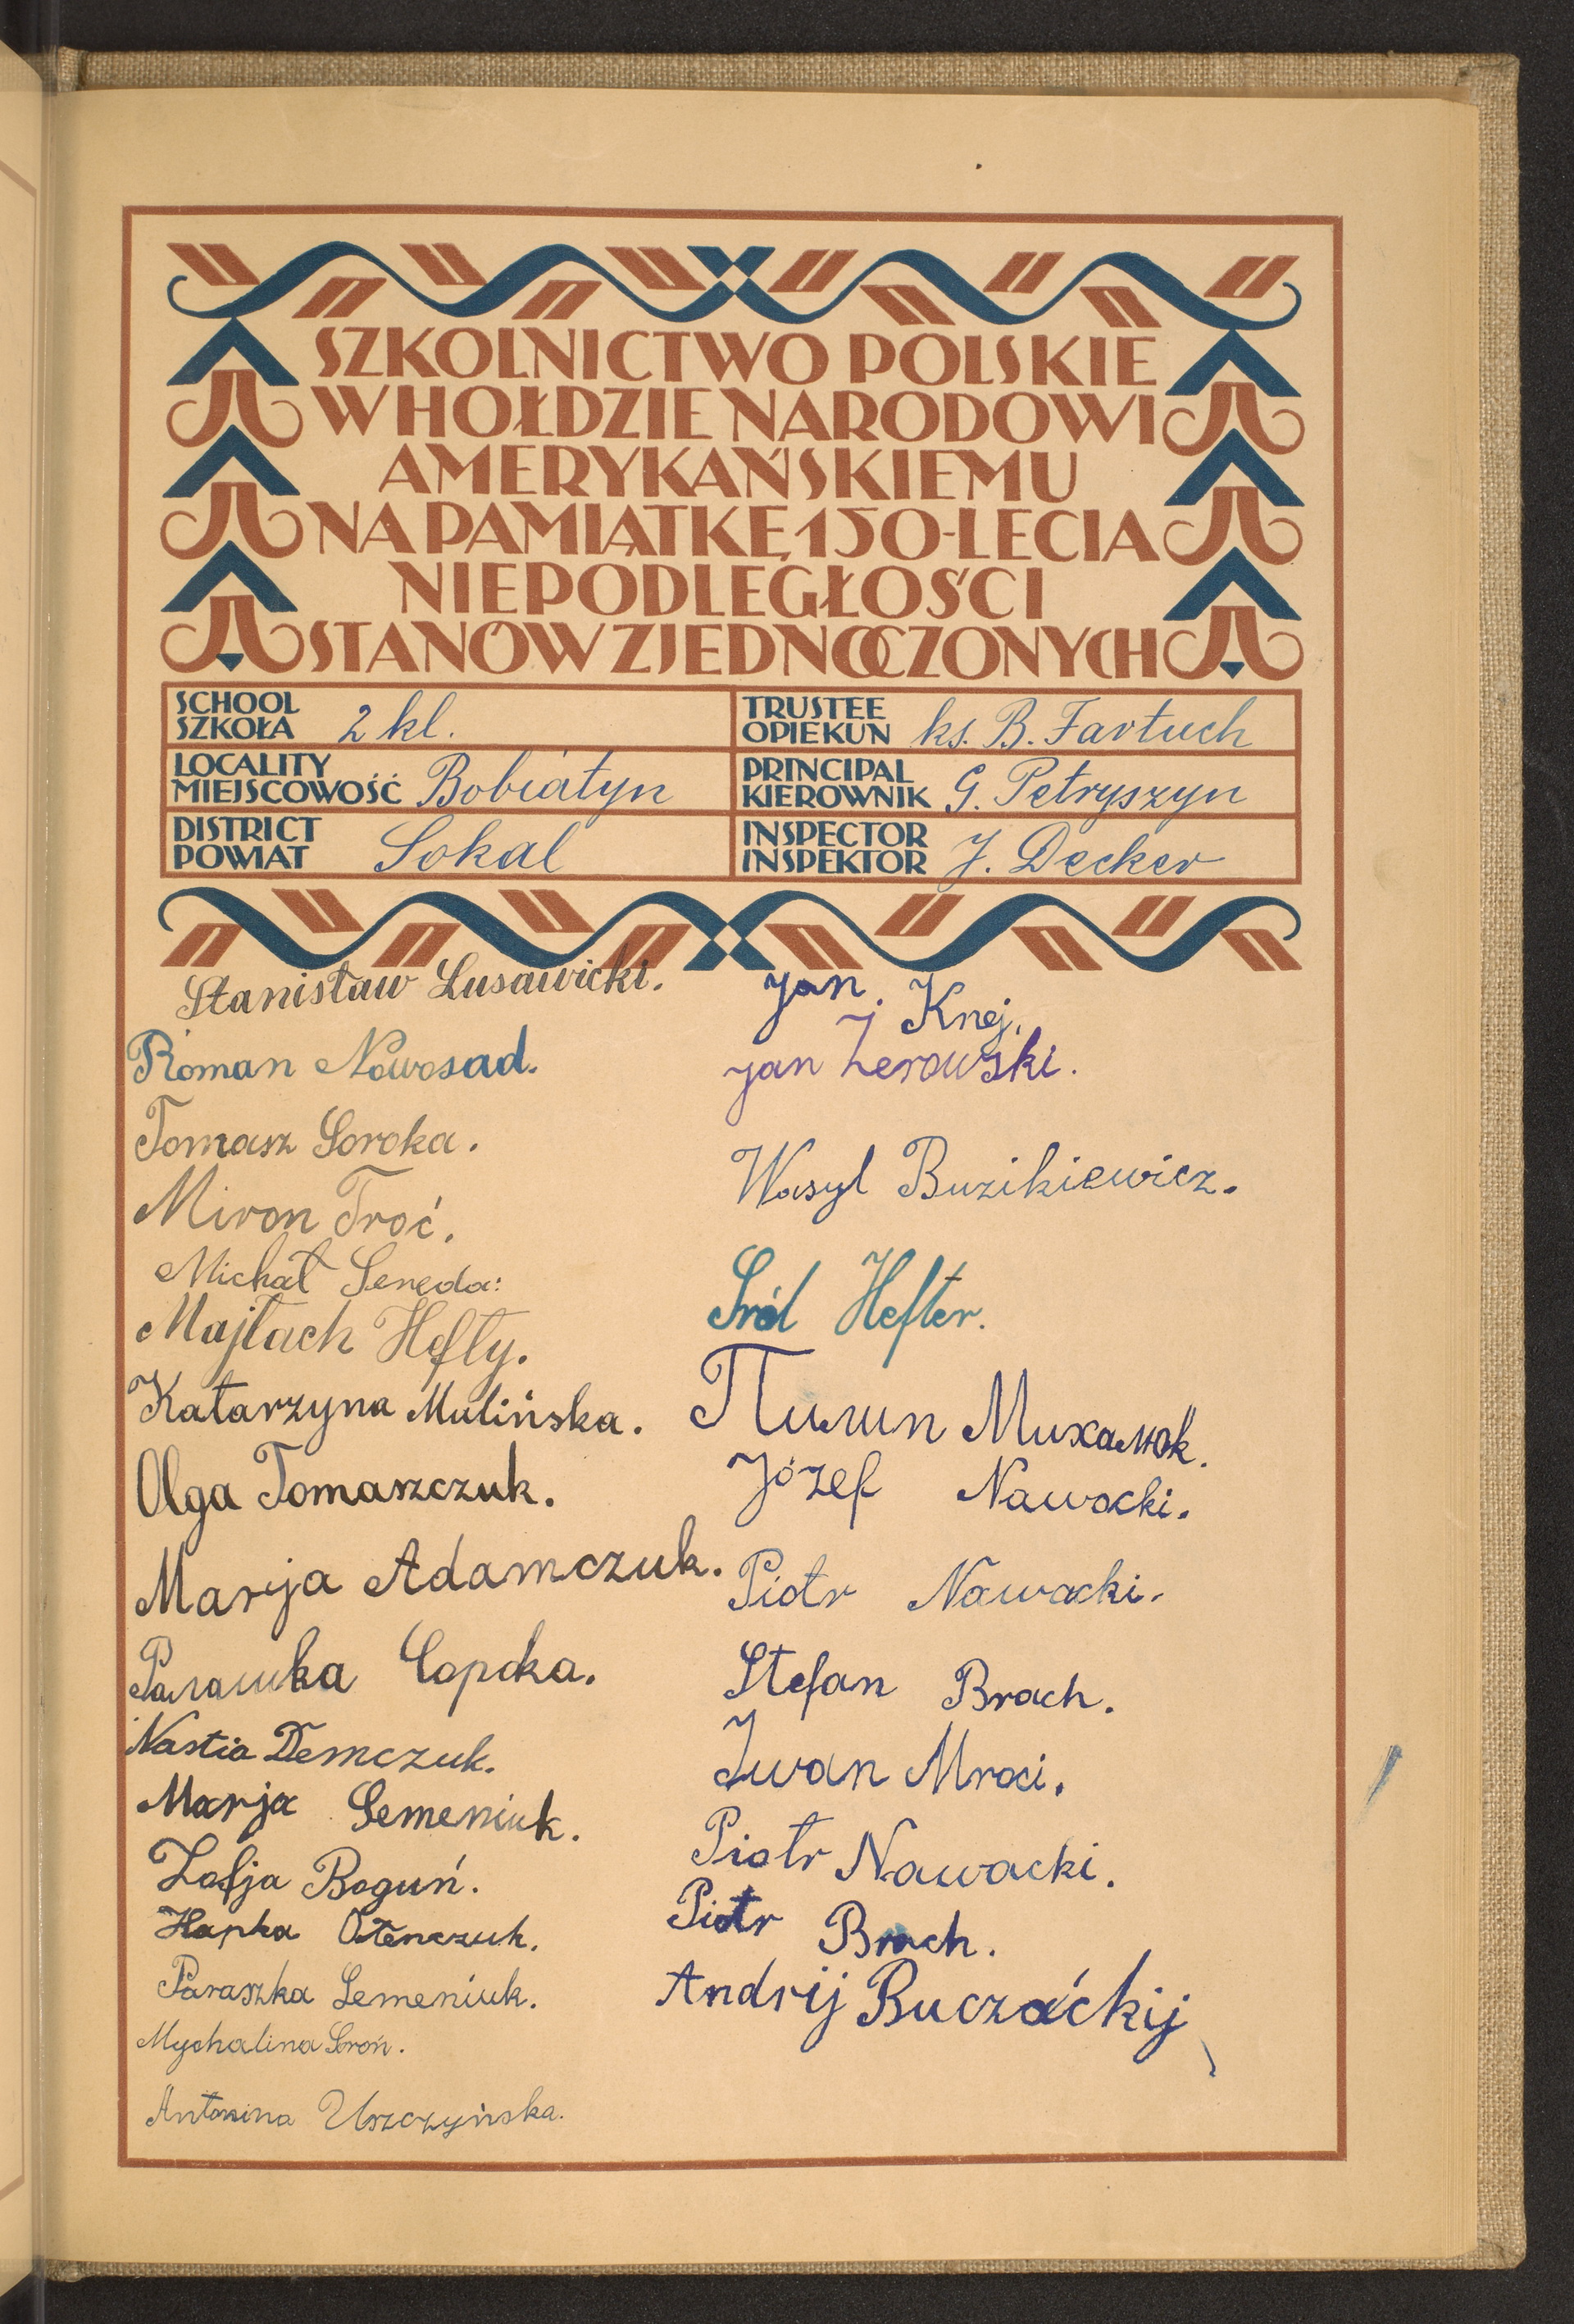 SZKOLNICTWO POLSKIE
W HOŁDZIE NARODOWI
AMERYKAŃSKIEMU
NA PAMIĄTKĘ 150-LECIA
NIEPODLEGŁOŚCI
STANÓW ZJEDNOCZONYCH
SCHOOL
SZKOŁA 2 kl.
TRUSTEE
OPIEKUN ks. B. Fartuch
LOCALITY
MIEJSCOWOŚĆ Bobiatyn
PRINCIPAL
KIEROWNIK G. Petryszyn
DISTRICT
POWIAT Sokal
INSPECTOR
INSPEKTOR J. Decker
Stanisław Lusawicki.
Roman Nowosad.
Tomasz Soroka.
Miron Troć.
Michał Sereda:
Majłach Hefty.
Katarzyna Mulińska.
Olga Tomaszczuk.
Marija Adamczuk.
Сорока.
Nastia Demczuk.
Marja Semeniuk.
Zofja Boguń.
Hapka
Paraszka Semeniuk.
Mychalina Soroń.
Antonina Uszczyńska.
Jan Knej.
Jan Zerowski.
Wasyl Buzikiewicz.
Sról Hefter.
Józef Nawocki.
Piotr Nawacki.
Stefan Brach.
Iwan Mroci.
Piotr Nawacki.
Piotr Brach.
Andrij Buczaćkij